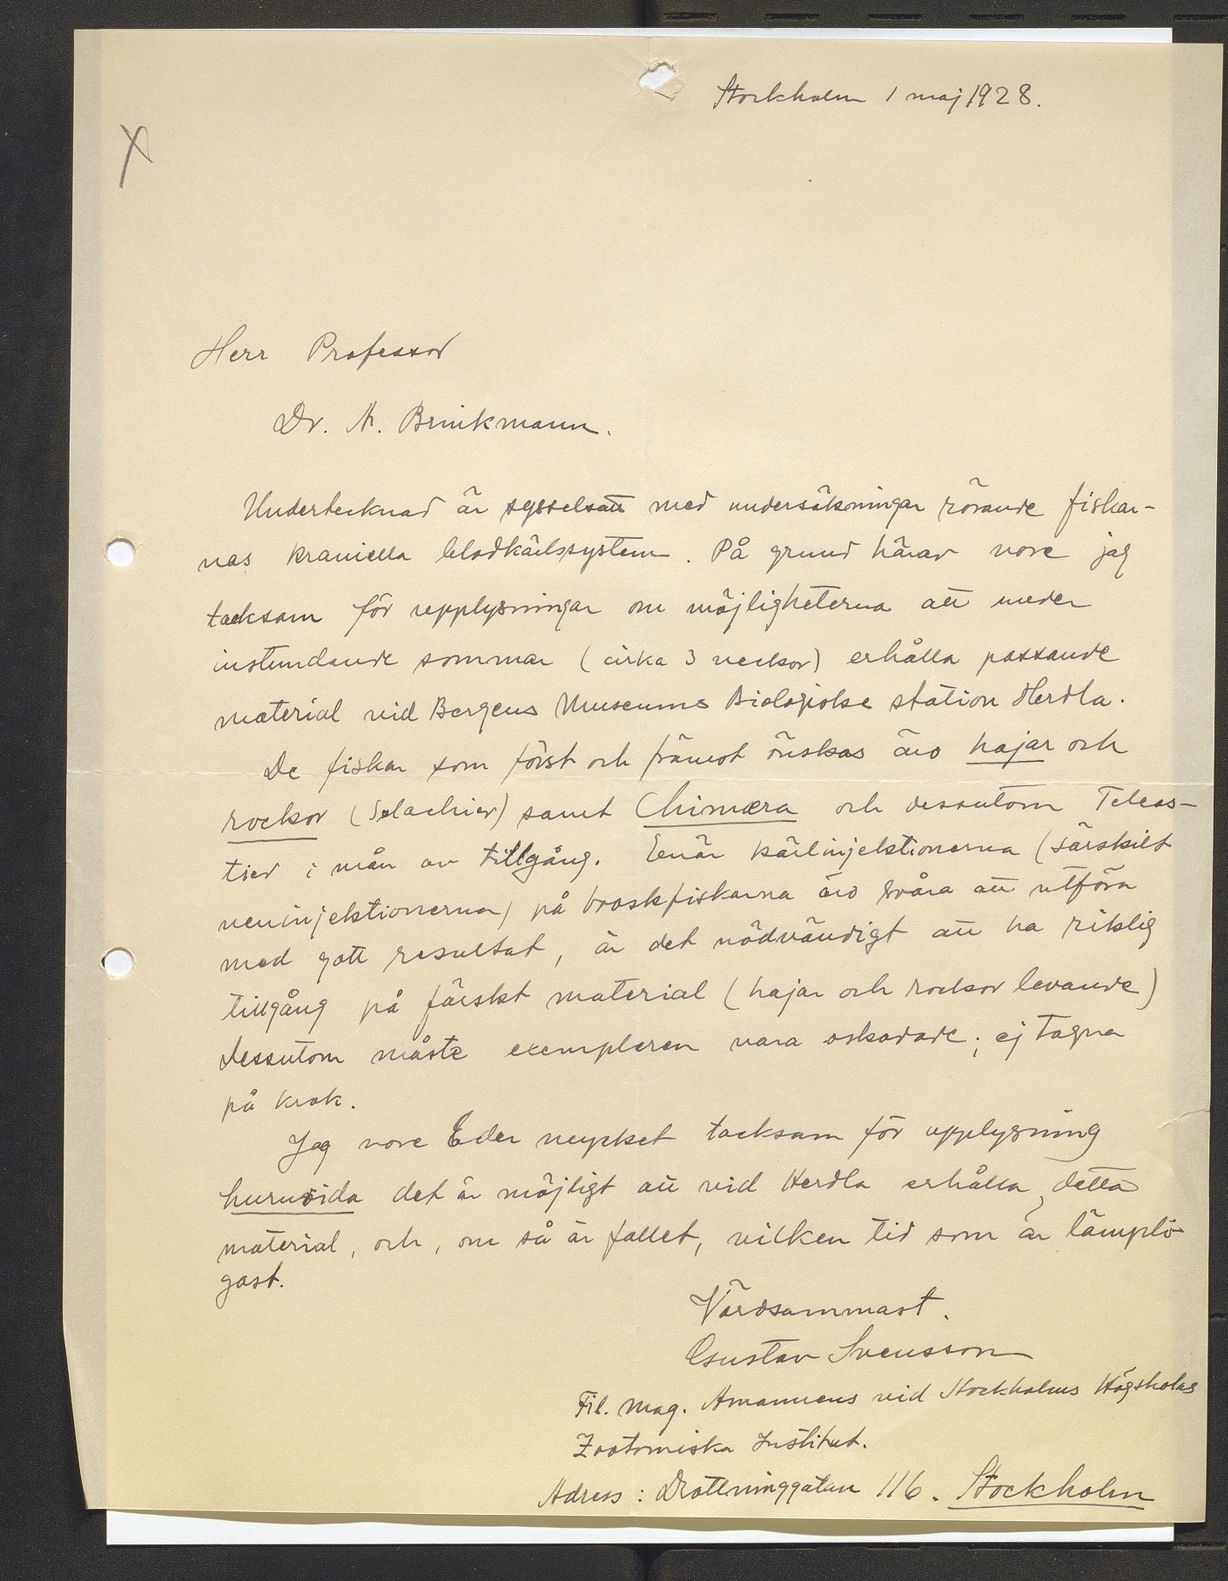 X
Stockholm 1 maj 1928.
Herr Professor
Dr. A. Brinkmann.
Undertecknad är sysselsatt med undersökningar rörande fiskar-
nas kraniella blodkärlssystem. På grund härav vore jag
tacksam för upplysningar om möjligheterna att under
instundande sommar (cirka 3 veckor) erhålla passande
material vid Bergens Museums Biologiske station Herdla.
De fiskar som först och främst önskas äro hajar och
rockor (Selachier) samt Chimæra och dessutom Teleos-
tier i mån av tillgång. Enär kärlinjektionerna (särskilt
veninjektionerna) på broskfiskarna äro svåra att utföra
med gott resultat, är det nödvändigt att ha riklig
tillgång på färskt material (hajar och rockor levande)
Dessutom måste exemplaren vara oskadade; ej tagna
på krok.
Jag vore Eder mycket tacksam för upplysning
huruvida det är möjligt att vid Herdla erhålla detta
material, och, om så är fallet, vilken tid som är lämpli-
gast.
Vördsammast.
Gustav Svensson
Fil. mag. Amanuens vid Stockholms Högskolas
Zootomiska Institut.
Adress: Drottninggatan 116. Stockholm